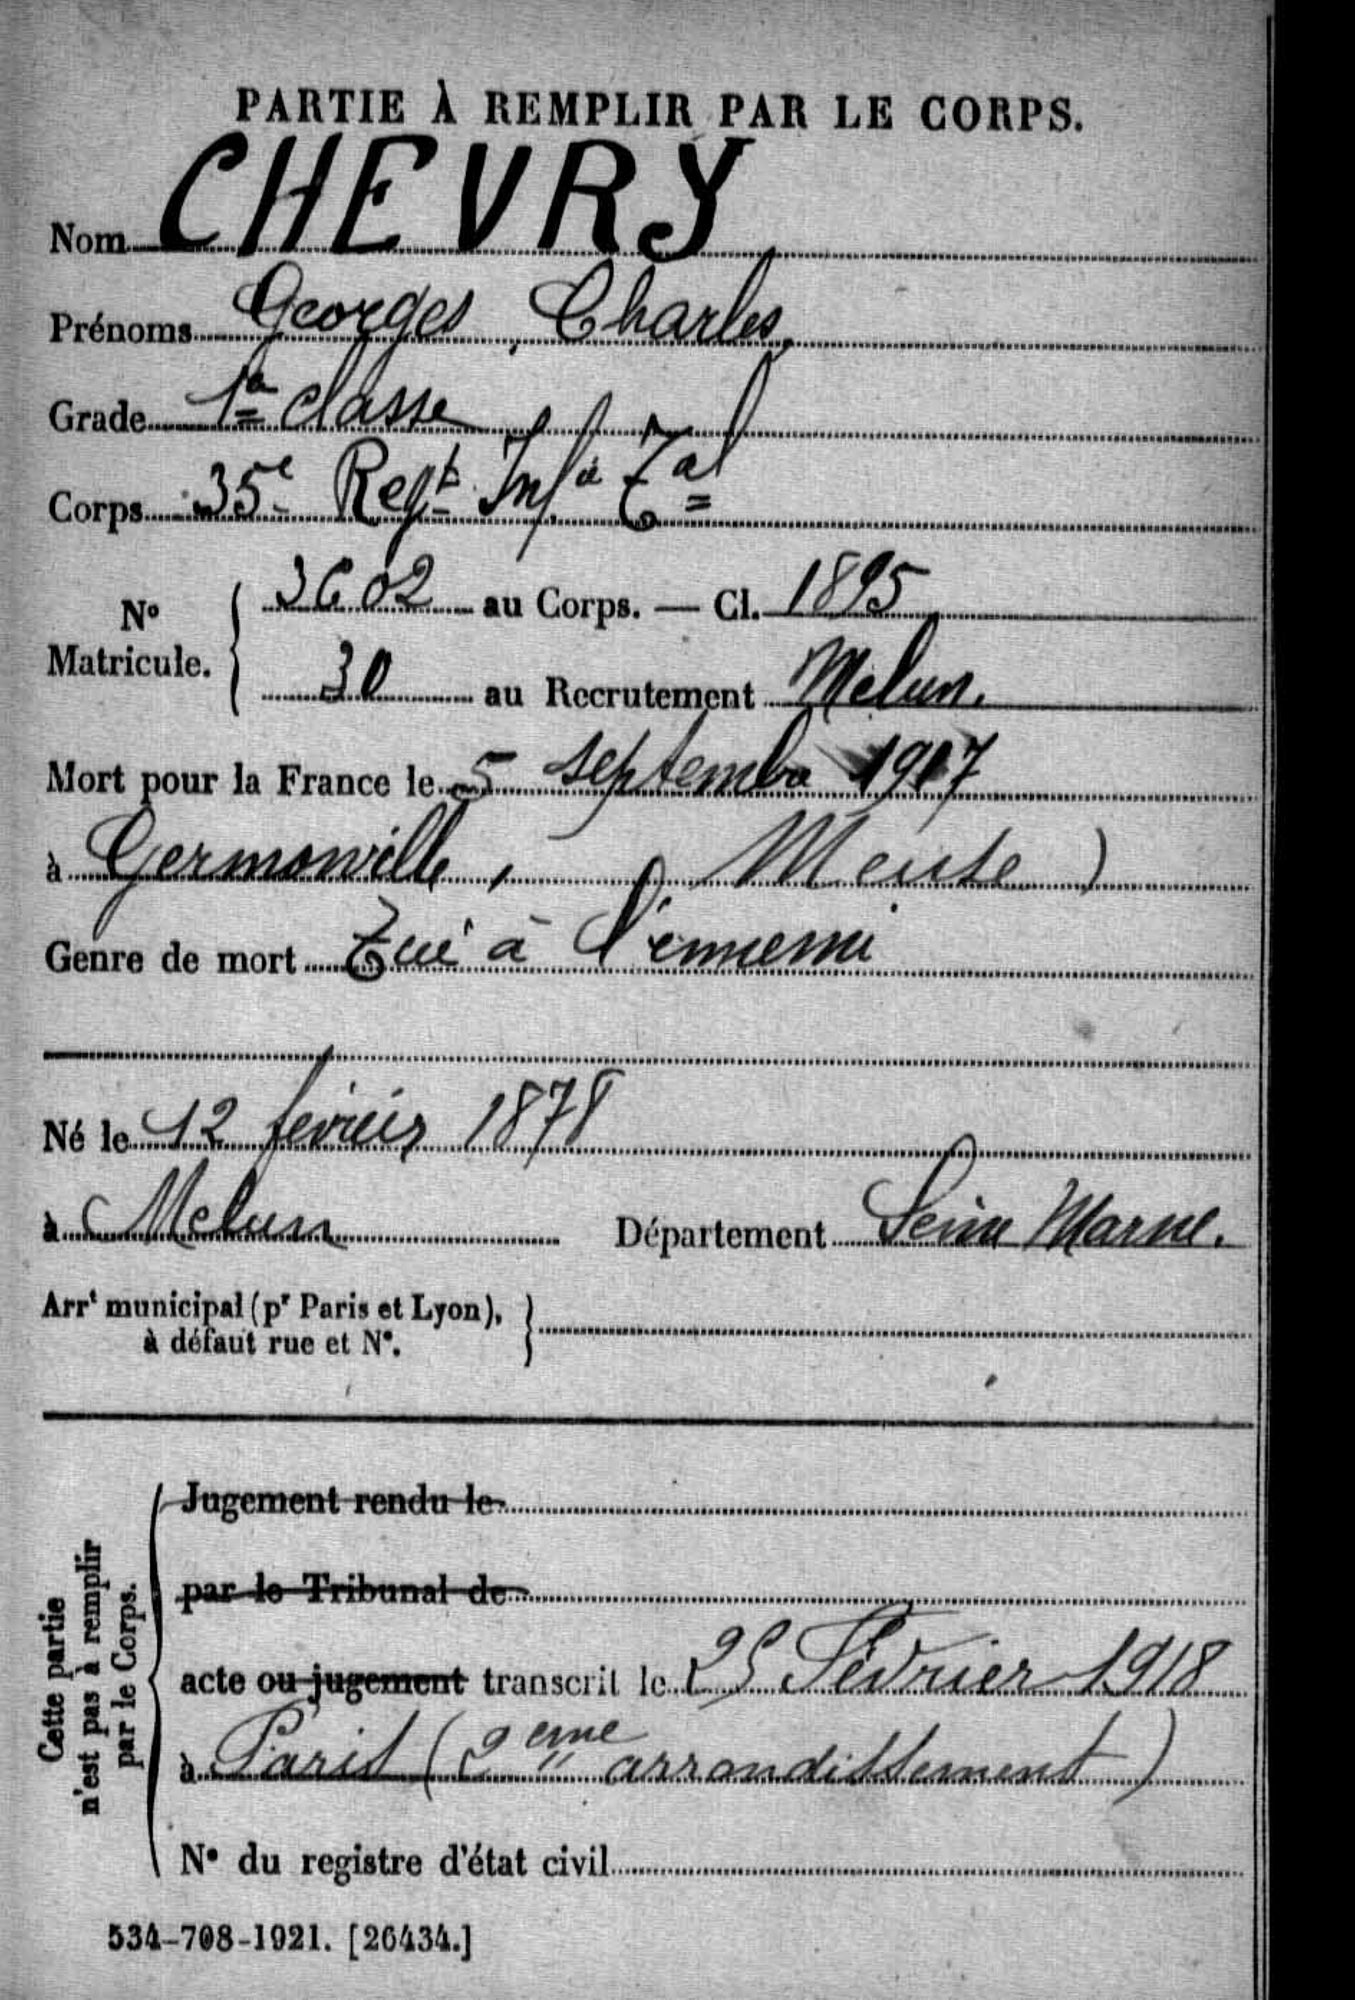 PARTIE À REMPLIR PAR LE CORPS.
Nom CHEVRY
Prénoms Georges, Charles,
Grade 1re classe
Corps 35e Regt Infie Tal
No Matricule. 3602 au Corps. — Cl. 1895
30 au Recrutement Melun.
Mort pour la France le 5 septembre 1917
à Germonville, Meuse)
Genre de mort Tué à l'ennemi
Né le 12 février 1878
à Melun Département Seine Marne.
Arrt municipal (pr Paris et Lyon),
à défaut rue et No.
Cette partie
n'est pas à remplir
par le Corps.
Jugement rendu le
par le Tribunal de
acte ou jugement transcrit le 25 Février 1918
à Paris (2eme arrondissement)
No du registre d'état civil
534-708-1921. [26434.]